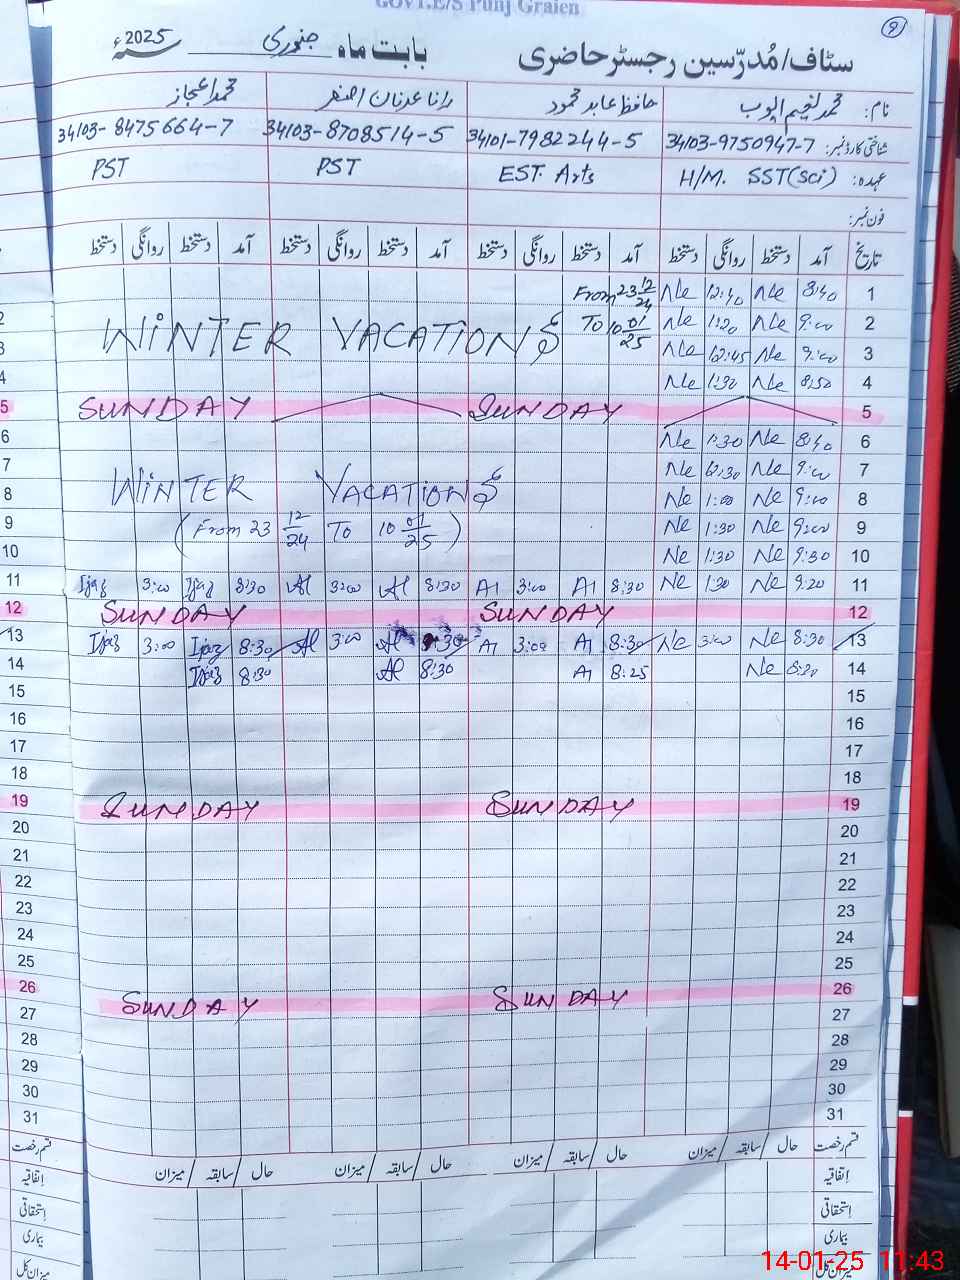 GOVT.E/S Punj Graien
9
سٹاف/مُدرّسین رجسٹر حاضری بابت ماہ جنوری 2025ء
نام: محمد نعیم ایوب حافظ عابد محمود رانا عدنان اصغر محمد اعجاز
شناختی کارڈ نمبر: 34103-9750947-7 34101-7982244-5 34103-8708514-5 34103-8475664-7
عہدہ: H/M. SST(Sci) EST. Arts PST PST
فون نمبر:
تاریخ آمد دستخط روانگی دستخط آمد دستخط روانگی دستخط آمد دستخط روانگی دستخط آمد دستخط روانگی دستخط
1 8:40 Ne 12:40 Ne From 23 12/24
2 9:00 Ne 1:20 Ne To 10 01/25
WINTER VACATIONS
3 9:00 Ne 12:45 Ne
4 8:50 Ne 1:30 Ne
5 SUNDAY SUNDAY 5
6 8:40 Ne 1:30 Ne 6
7 9:00 Ne 12:30 Ne 7
8 9:00 Ne 1:00 Ne WINTER VACATIONS 8
9 9:00 Ne 1:30 Ne (From 23 12/24 To 10 01/25) 9
10 9:30 Ne 1:30 Ne 10
11 9:20 Ne 1:30 Ne 8:30 A1 3:00 A1 8:30 Al 3:00 Al 8:30 Ijaz 3:00 Ijaz 11
12 SUNDAY SUNDAY 12
13 8:30 Ne 3:00 Ne 8:30 A1 3:00 A1 8:30 Al 3:00 Al 8:30 Ijaz 3:00 Ijaz 13
14 8:30 Ne 8:25 A1 8:30 Al 8:30 Ijaz 14
15 15
16 16
17 17
18 18
19 SUNDAY SUNDAY 19
20 20
21 21
22 22
23 23
24 24
25 25
26 SUNDAY SUNDAY 26
27 27
28 28
29 29
30 30
31 31
قسم رخصت حال / سابقہ / میزان حال / سابقہ / میزان حال / سابقہ / میزان حال / سابقہ / میزان قسم رخصت
اتفاقیہ اتفاقیہ
استحقاقی استحقاقی
بیماری بیماری
میزان کل میزان کل
14-01-25 11:43